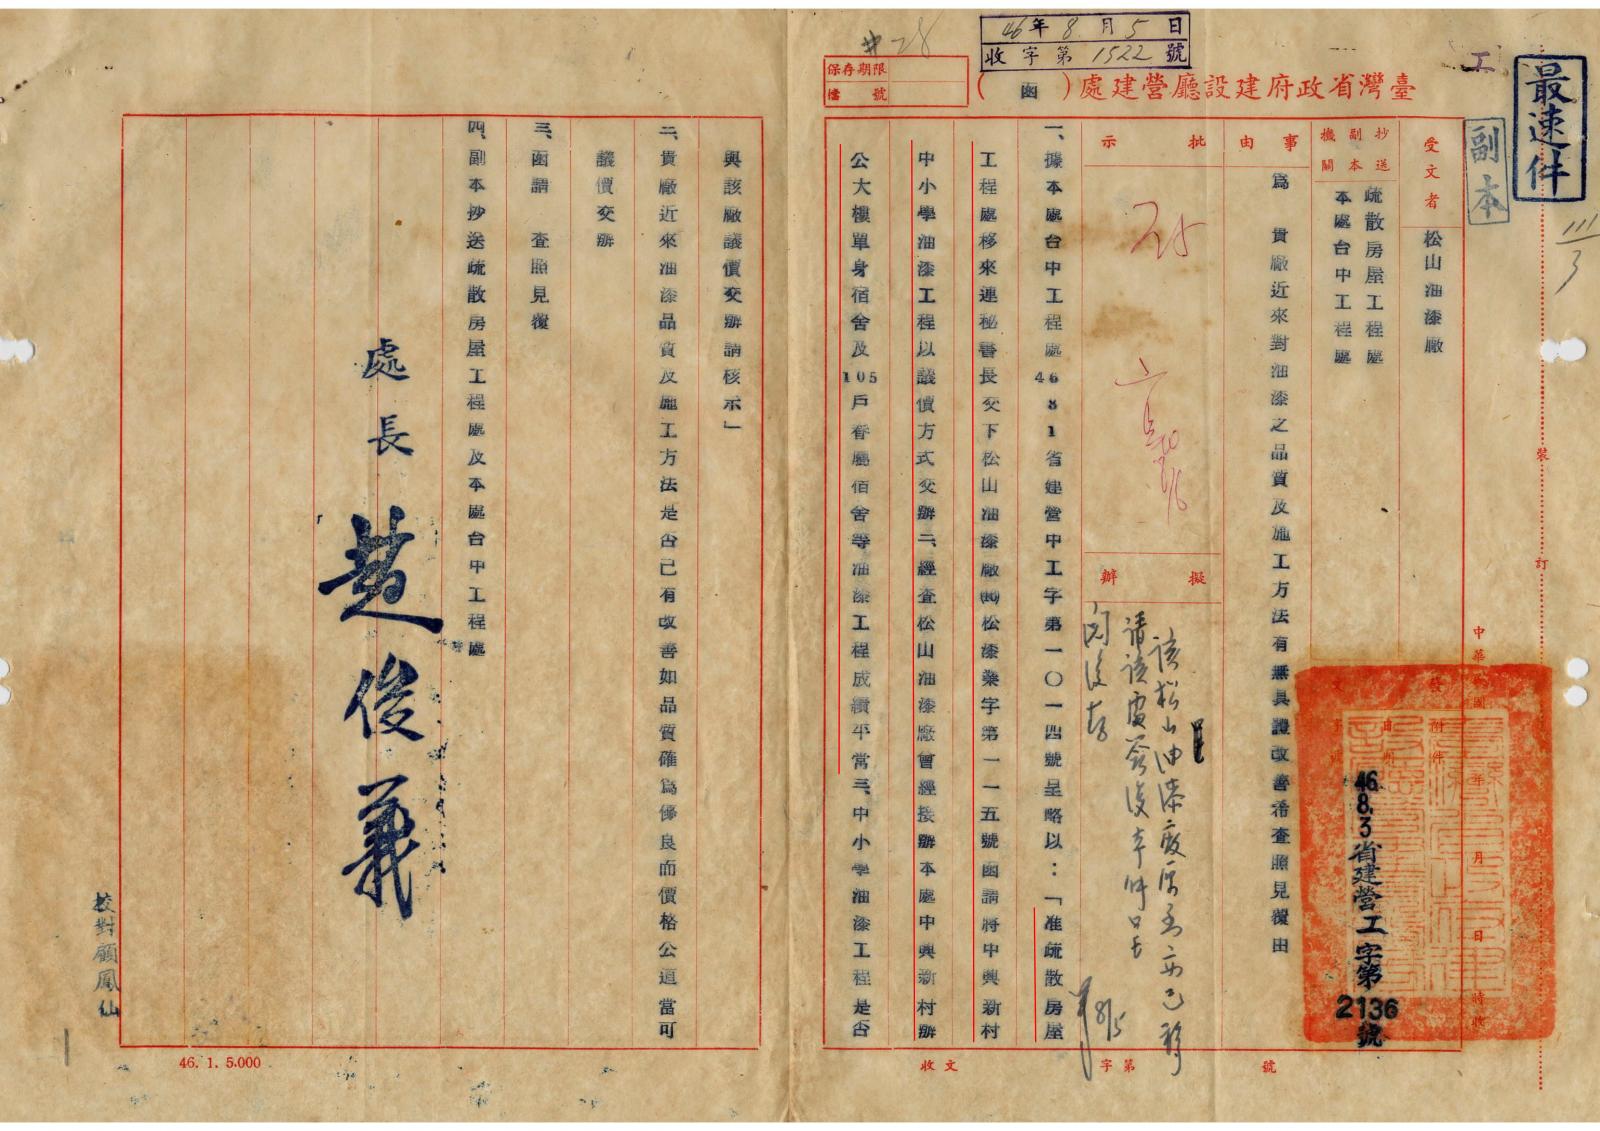 最速件
副本
工
46年8月5日
收字第1522號
#28
保存期限
檔號
臺灣省政府建設廳營建處（函）
受文者
松山油漆廠
抄送副本機關
疏散房屋工程處
本處台中工程處
事由
為貴廠近來對油漆之品質及施工方法有無具體改善希查照見覆由
批示
擬辦
該松山油漆廠
請該處簽復
中華民國年月日時收
發文日期字號附件
46.8.3省建營工字第2136號
一、據本處台中工程處4681省建營中工字第一〇一四號呈略以：「准疏散房屋
工程處移來連秘書長交下松山油漆廠(46)松漆業字第一一五號函請將中興新村
中小學油漆工程以議價方式交辦二、經查松山油漆廠曾經接辦本處中興新村辦
公大樓單身宿舍及105戶眷屬宿舍等油漆工程成績平常三、中小學油漆工程是否
與該廠議價交辦請核示」
二、貴廠近來油漆品質及施工方法是否已有改善如品質確為優良而價格公道當可
議價交辦
三、函請查照見覆
四、副本抄送疏散房屋工程處及本處台中工程處
處長
俊義
校對顧鳳仙
裝
訂
收文
字第
號
46.1.5.000